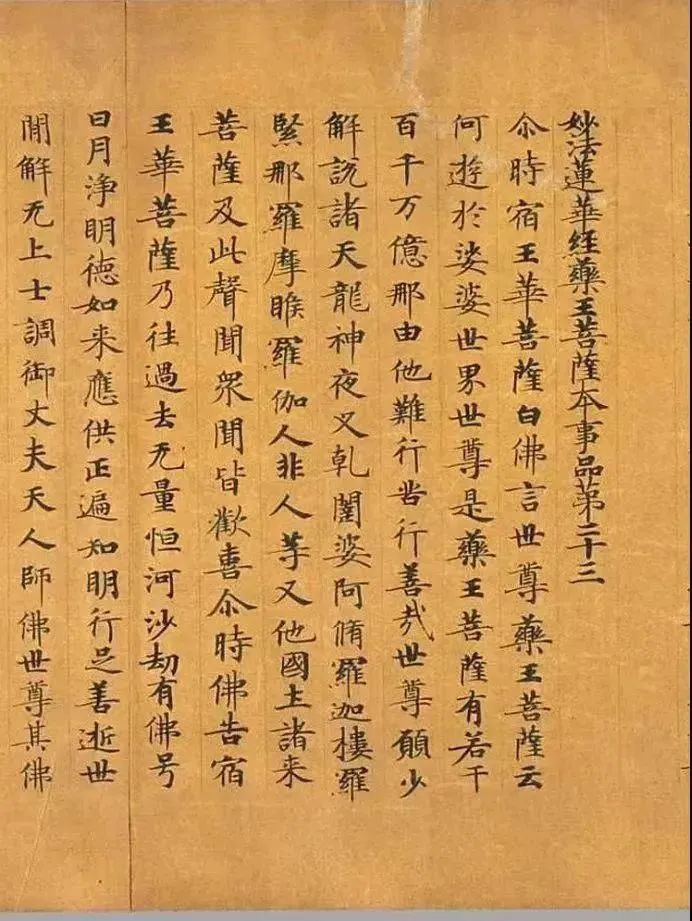 妙法蓮華經藥王菩薩本事品第二十三
尒時宿王華菩薩白佛言世尊藥王菩薩云
何遊於娑婆世界世尊是藥王菩薩有若干
百千万億那由他難行苦行善哉世尊願少
解說諸天龍神夜叉乹闥婆阿脩羅迦樓羅
緊那羅摩睺羅伽人非人等又他國土諸来
菩薩及此聲聞衆聞皆歡喜尒時佛告宿
王華菩薩乃往過去无量恒河沙劫有佛号
日月淨明德如来應供正遍知明行足善逝世
閒解无上士調御丈夫天人師佛世尊其佛